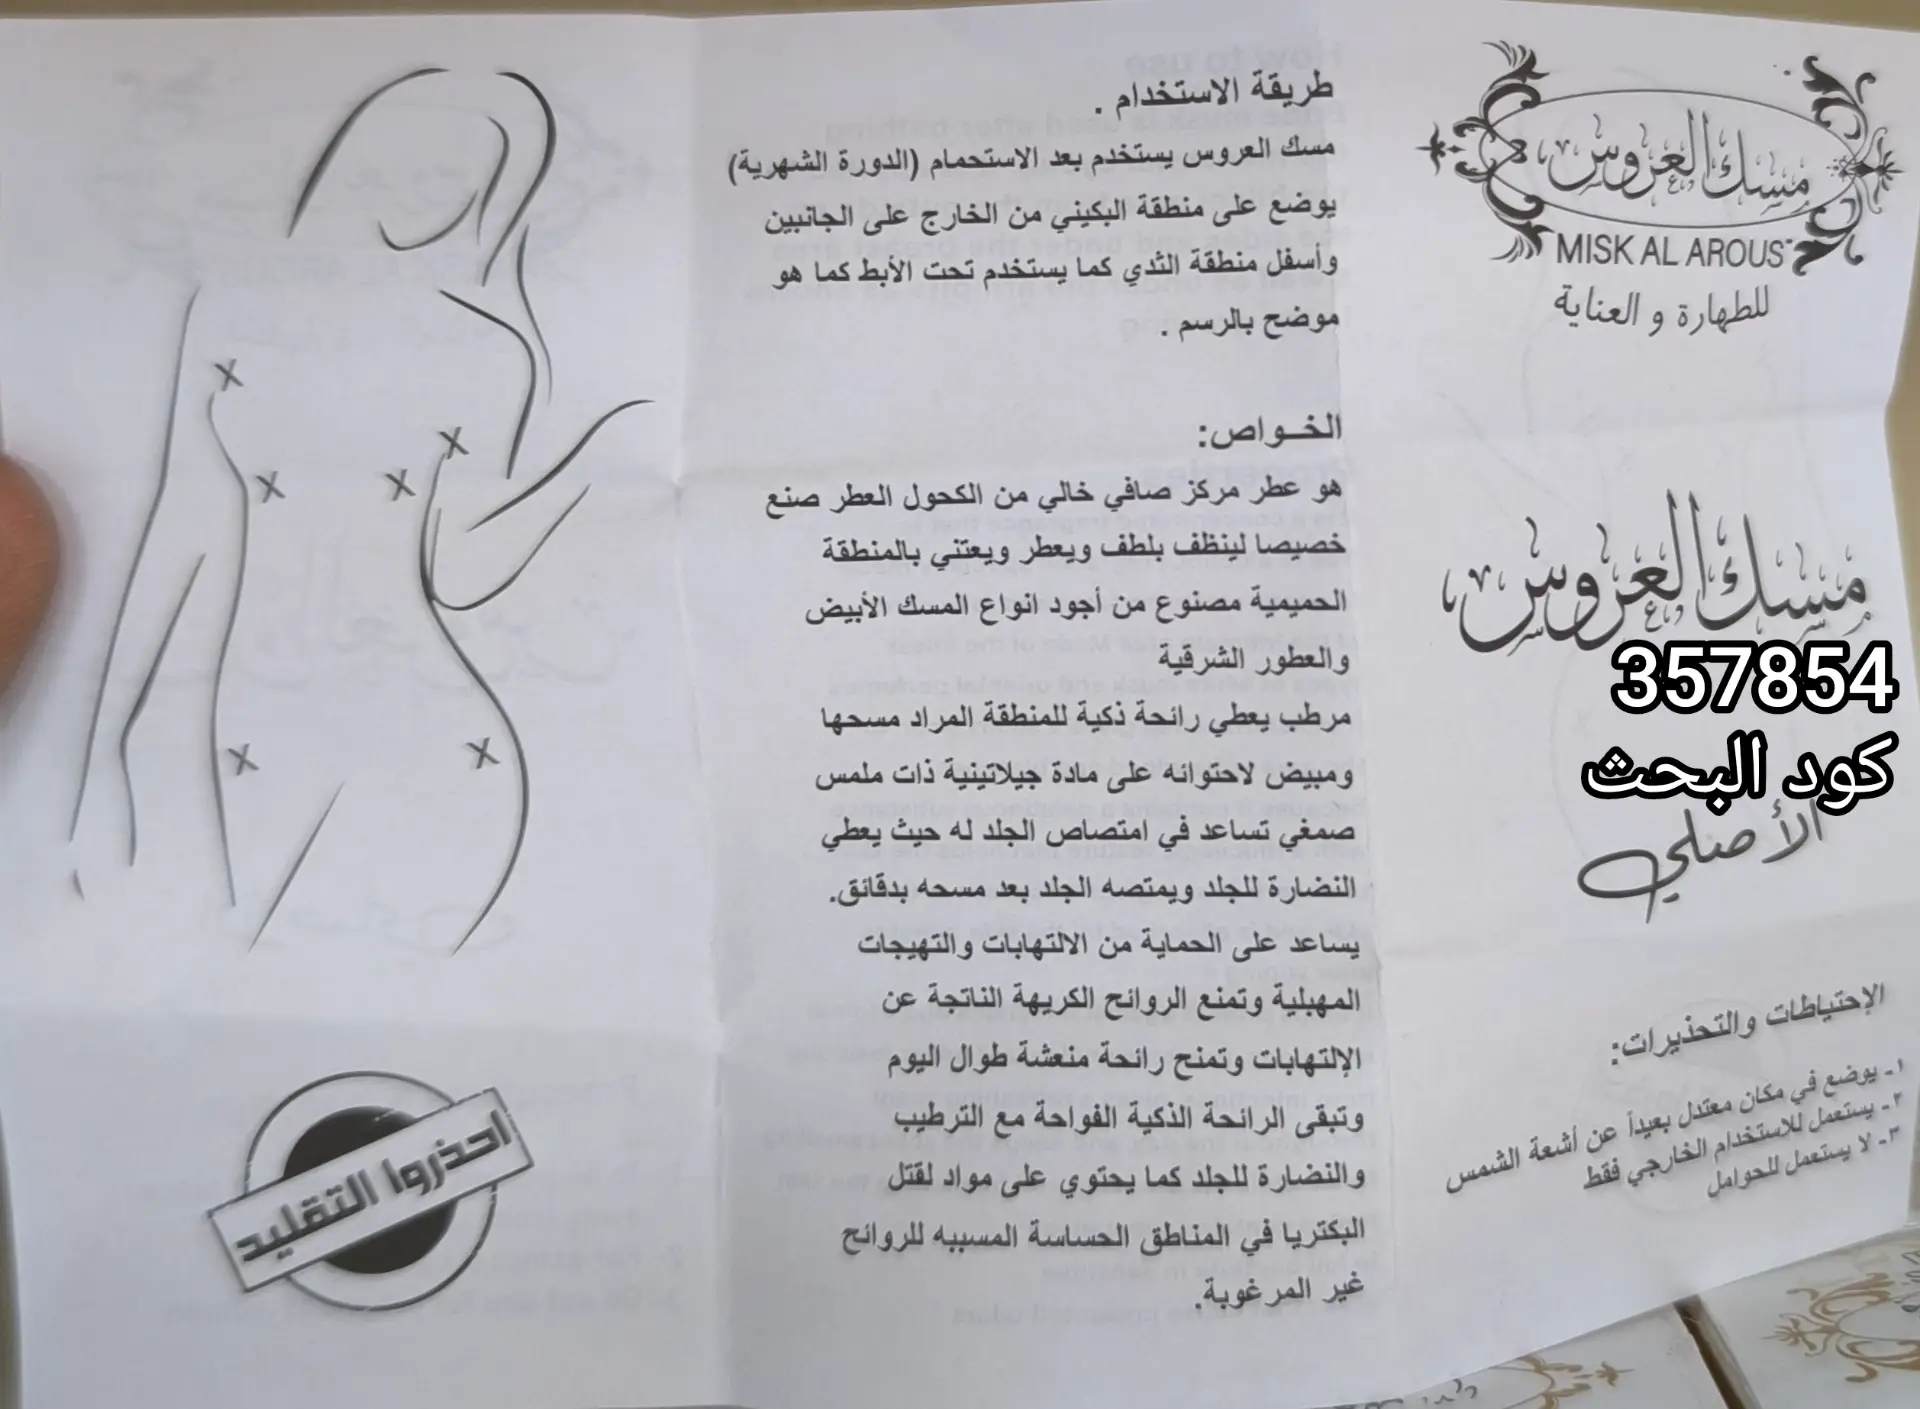 مسك العروس
MISK AL AROUS
للطهارة و العناية
مسك العروس
357854
كود البحث
الأصلي
الإحتياطات والتحذيرات:
١- يوضع في مكان معتدل بعيداً عن أشعة الشمس
٢- يستعمل للاستخدام الخارجي فقط
٣- لا يستعمل للحوامل
طريقة الاستخدام .
مسك العروس يستخدم بعد الاستحمام (الدورة الشهرية)
يوضع على منطقة البكيني من الخارج على الجانبين
وأسفل منطقة الثدي كما يستخدم تحت الأبط كما هو
موضح بالرسم .
الخـــواص:
هو عطر مركز صافي خالي من الكحول العطر صنع
خصيصا لينظف بلطف ويعطر ويعتني بالمنطقة
الحميمية مصنوع من أجود انواع المسك الأبيض
والعطور الشرقية
مرطب يعطي رائحة ذكية للمنطقة المراد مسحها
ومبيض لاحتوائه على مادة جيلاتينية ذات ملمس
صمغي تساعد في امتصاص الجلد له حيث يعطي
النضارة للجلد ويمتصه الجلد بعد مسحه بدقائق.
يساعد على الحماية من الالتهابات والتهيجات
المهبلية وتمنع الروائح الكريهة الناتجة عن
الإلتهابات وتمنح رائحة منعشة طوال اليوم
وتبقى الرائحة الذكية الفواحة مع الترطيب
والنضارة للجلد كما يحتوي على مواد لقتل
البكتريا في المناطق الحساسة المسببه للروائح
غير المرغوبة.
x
x
x
x
x
x
احذروا التقليد